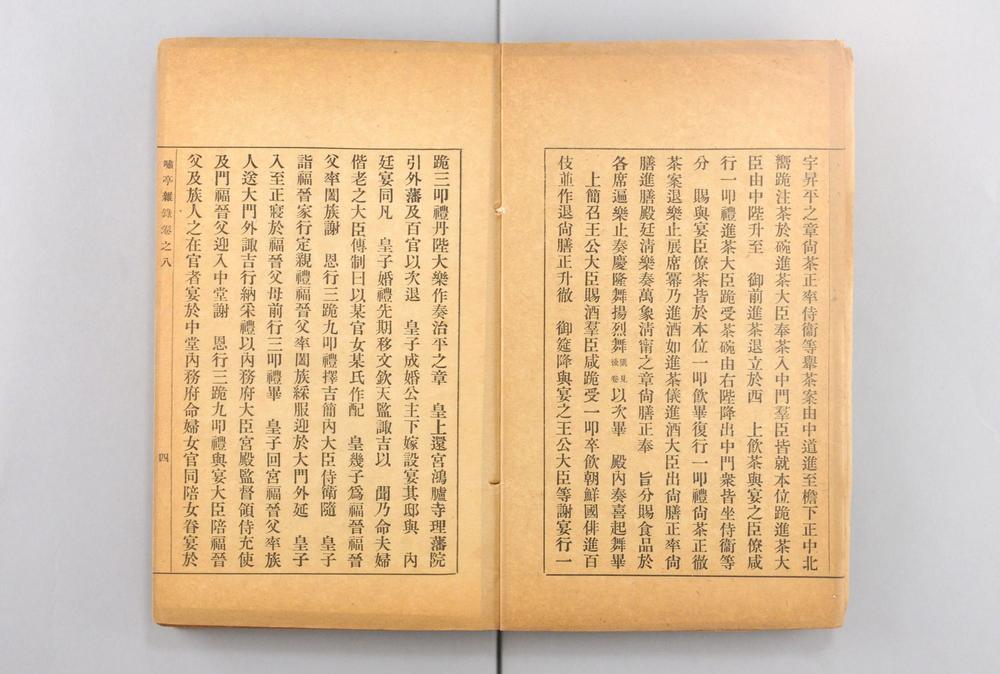 宇昇平之章尙茶正率侍衞等舉茶案由中道進至檐下正中北
嚮跪注茶於碗進茶大臣奉茶入中門羣臣皆就本位跪進茶大
臣由中陛升至　御前進茶退立於西　上飮茶與宴之臣僚咸
行一叩禮進茶大臣跪受茶碗由右陛降出中門衆皆坐侍衞等
分　賜與宴臣僚茶皆於本位一叩飮畢復行一叩禮尙茶正徹
茶案退樂止展席冪乃進酒如進茶儀進酒大臣出尙膳正率尙
膳進膳殿廷淸樂奏萬象淸甯之章尙膳正奉　旨分賜食品於
各席遍樂止奏慶隆舞揚烈舞後卷以次畢　殿內奏喜起舞畢
上簡召王公大臣賜酒羣臣咸跪受一叩卒飮朝鮮國俳進百
伎並作退尙膳正升徹　御筵降與宴之王公大臣等謝宴行一
跪三叩禮丹陛大樂作奏治平之章　皇上還宮鴻臚寺理藩院
引外藩及百官以次退　皇子成婚公主下嫁設宴其邸與　內
廷宴同凡　皇子婚禮先期移文欽天監諏吉以　聞乃命夫婦
偕老之大臣傳制曰以某官女某氏作配　皇幾子爲福晉福晉
父率闔族謝　恩行三跪九叩禮擇吉簡內大臣侍衞隨　皇子
詣福晉家行定親禮福晉父率闔族綵服迎於大門外延　皇子
入至正寢於福晉父母前行三叩禮畢　皇子回宮福晉父率族
人送大門外諏吉行納采禮以內務府大臣宮殿監督領侍充使
及門福晉父迎入中堂謝　恩行三跪九叩禮與宴大臣陪福晉
父及族人之在官者宴於中堂內務府命婦女官同陪女眷宴於
嘯亭雜錄卷之八
四